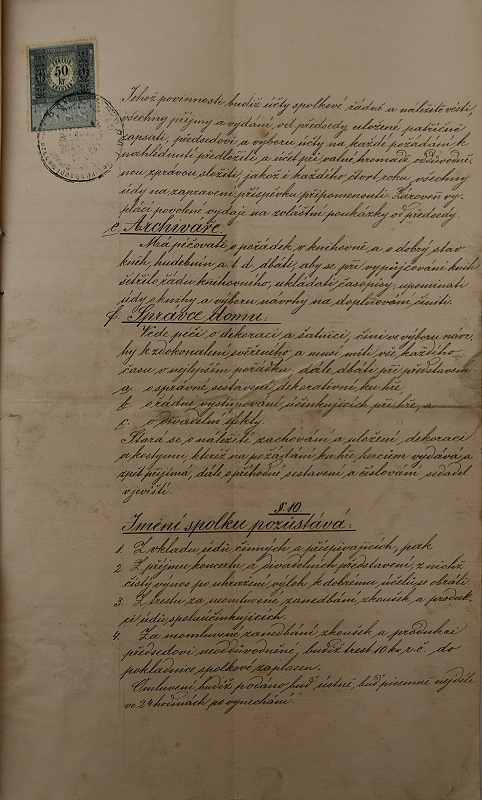 50
kr
Jehož povinností budiž účty spolkové řádně a náležitě vésti,
všechny příjmy a vydání, od předsedy uložené patřičně
zapsati, předsedovi a výboru účty na každé požádání k
nahlédnutí předložiti, a účet při valné hromadě odůvodně-
nou zprávou složiti, jakož i každého čtvrt roku všechny
údy na zapravení příspěvku připomenouti. Zároveň vy-
plácí povolené výdaje na zvláštní poukázky od předsedy.
e. Archivaře.
Má pečovati o pořádek v knihovně, a o dobrý stav
knih, hudebnin, a. t. d. dbáti, aby se při vypůjčování knih
šetřilo řádu knihovního, ukládati časopisy, upomínati
údy o knihy a výboru návrhy na doplňování činiti.
f. Správce domu:
Vede péči o dekorace, a šatnici, činí ve výboru návr-
hy k zdokonalení svěřeného, a musí míti, vše každého
času v nejlepším pořádku, dále dbáti při představení
a. o správné sestavení dekorativní ku hře
b. o řádné vystupování účinkujících při hře, a
c. o divadelní efekty.
Stará se o náležité zachování, a uložení dekorací
a kostymů, kteréž na požádání ku hře hercům vydává, a
zpět přijímá, dále o příhodné sestavení a číslování sedadel
v jevišti.
§ 10.
Jmění spolku pozůstává:
1. Z vkladu údů činných a přispívajících, pak
2. Z příjmu koncertu a divadelních představení, z nichž
čistý výnos po uhražení výloh k dobrému účeli se obrátí.
3. Z trestu za neomluvené zanedbání zkoušek, a produk-
cí údů spoluúčinkujících.
4. Za neomluvené zanedbání zkoušek a produkcí
předsedovi neodůvodněné, budiž trest 10 kr. r. č. do
pokladnice spolkové zaplacen.
Omluvení budiž podáno, buď ústně, buď písemně nejdéle
ve 24 hodinách po vynechání.